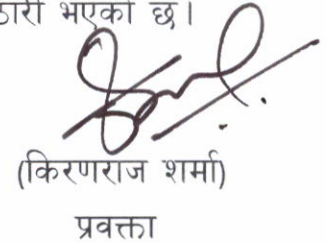 ठारी भएको छ।
(किरणराज शर्मा)
प्रवक्ता